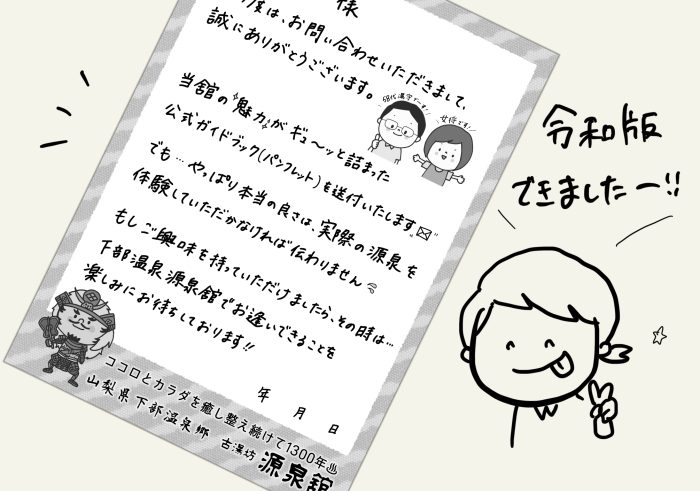 様
度は、お問い合わせいただきまして、
誠にありがとうございます。
当館の"魅力"がギュ〜ッと詰まった
公式ガイドブック(パンフレット)を送付いたします
58代湯守です!
女将です!
でも…やっぱり本当の良さは、実際の源泉を
体験していただかなければ伝わりません
もしご興味を持っていただけましたら、その時は…
下部温泉源泉館でお逢いできることを
楽しみにお待ちしております!!
年 月 日
ココロとカラダを癒し整え続けて1300年♨
山梨県下部温泉郷 古湯坊 源泉館
令和版
できましたー!!